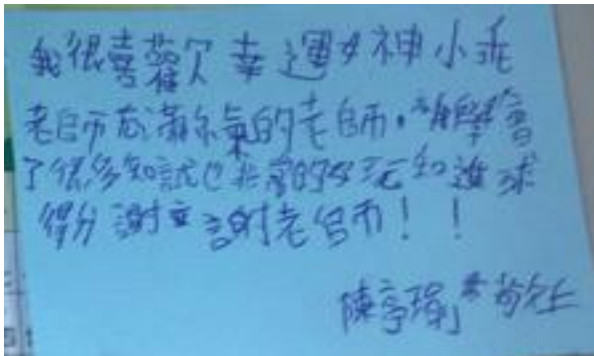 我很喜歡幸運女神小乖
老師充滿朝氣的老師,讓學會
了很多知試也非常的好玩知進球
得分謝謝老師!!
陳亭 敬上